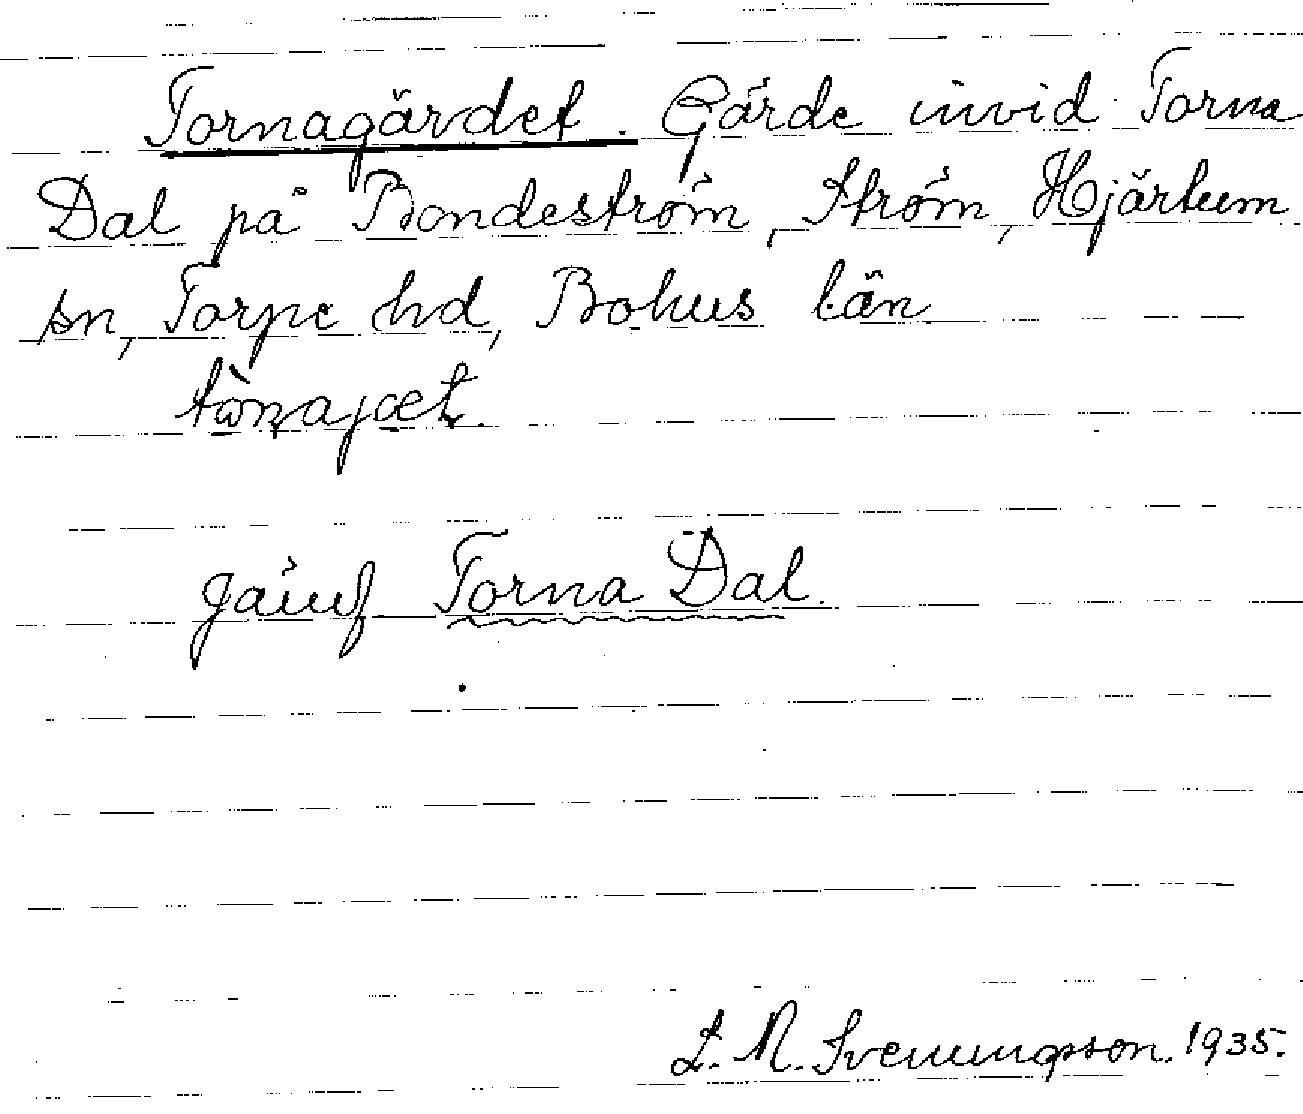 Tornagärdet. Gärde invid Torna
Dal på Bondeström, Ström, Hjärtum
sn, Torpe hd, Bohus län
jämf Torna Dal.
L. M. Svenungsson. 1935.